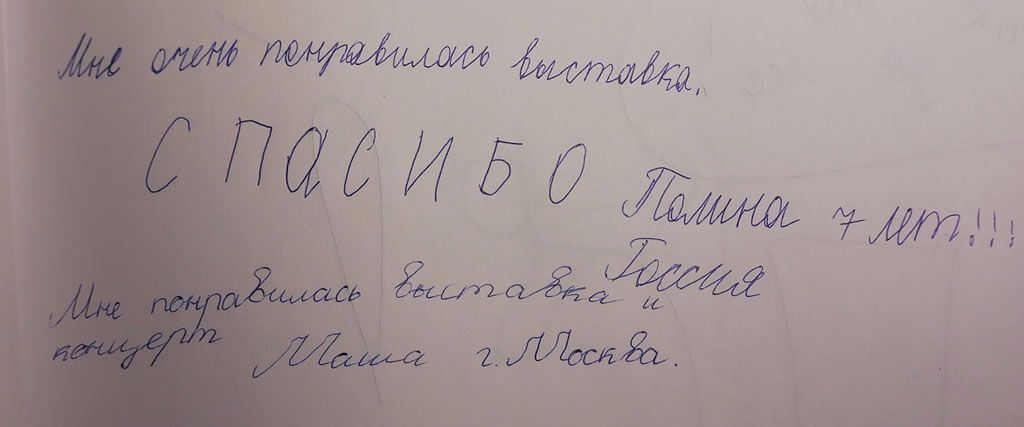 Мне очень понравилась выставка.
СПАСИБО Полина 7 лет!!!
Россия
Мне понравилась выставка и
концерт Маша г. Москва.